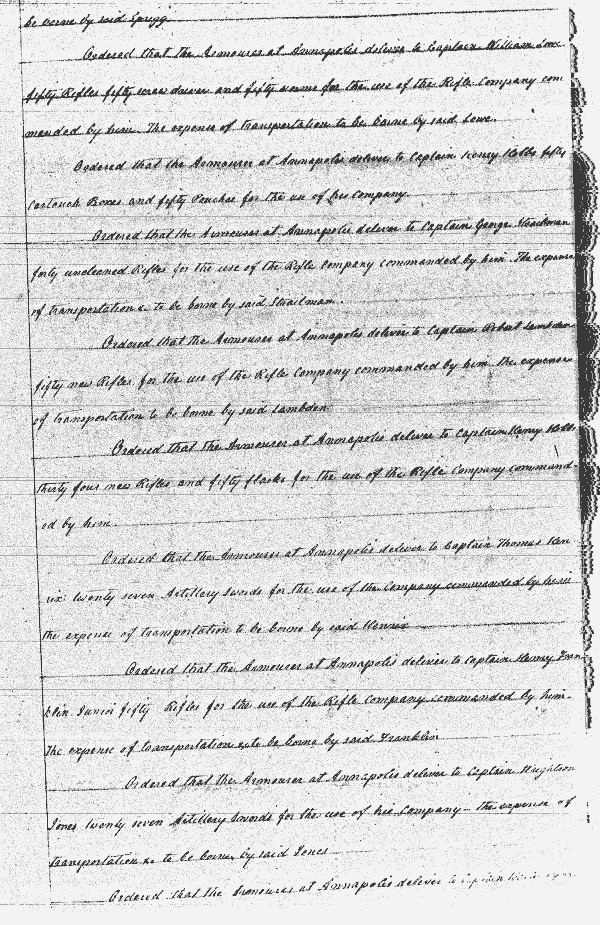 be borne by said Sprigg
Ordered that the Armourer at Annapolis deliver to Captain William Lowe
fifty Rifles fifty screw driver and fifty worms for the use of the Rifle Company com
manded by him. The expense of transportation to be borne by said Lowe.
Ordered that the Armourer at Annapolis deliver to Captain Henry Hobbs fifty
Cartouch Boxes and fifty Pouches for the use of his Company.
Ordered that the Armourer at Annapolis deliver to Captain George
forty uncleaned Rifles for the use of the Rifle Company commanded by him. The expense
of transportation &c to be borne by said
Ordered that the Armourer at Annapolis deliver to Captain Robert Lambden
fifty new Rifles for the use of the Rifle Company commanded by him the expense
of transportation to be borne by said Lambden
Ordered that the Armourer at Annapolis deliver to Captain Henry Hobbs
thirty four new Rifles and fifty flasks for the use of the Rifle Company command-
ed by him.
Ordered that the Armourer at Annapolis deliver to Captain Thomas Ken
rix twenty seven Artillery Swords for the use of the Company commanded by him
the expense of transportation to be borne by said
Ordered that the Armourer at Annapolis deliver to Captain Henry Fran
klin Junior fifty Rifles for the use of the Rifle Company commanded by him.
The expense of transportation &c to be borne by said Franklin
Ordered that the Armourer at Annapolis deliver to Captain Hughtson
Jones twenty seven Artillery Swords for the use of his Company - the expense of
transportation &c to be borne by said Jones
Ordered that the Armourer at Annapolis deliver to Captain